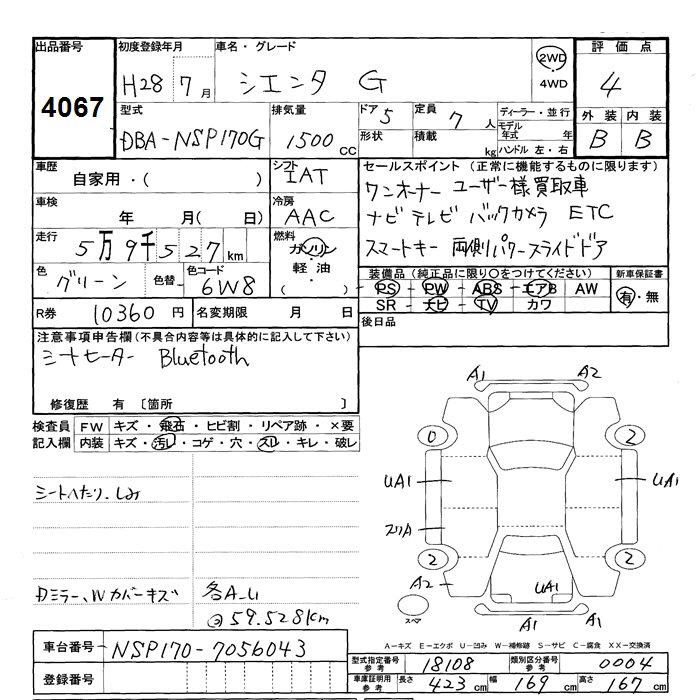 出品番号 初度登録年月 車名・グレード 2WD ・ 4WD 評価点
4067 H28 7月 シエンタ G 4
型式 排気量 ドア 5 定員 7人 ディーラー・並行 外装 内装
DBA-NSP170G 1500cc 形状 積載 kg モデル年式 年 ハンドル 左・右 B B
車歴 自家用・( ) シフト IAT セールスポイント (正常に機能するものに限ります)
ワンオーナー ユーザー様買取車
車検 年 月( 日) 冷房 AAC ナビ テレビ バックカメラ ETC
走行 5万9千527km 燃料 ガソリン・軽油・( ) スマートキー 両側パワースライドドア
色 グリーン 色替 色コード 6W8 装備品(純正品に限り○をつけてください) 新車保証書
PS - PW - ABS - エアB AW 有・無
SR - ナビ - TV - カワ
R券 10360円 名変期限 月 日 後日品
注意事項申告欄(不具合内容等は具体的に記入して下さい)
シートヒーター Bluetooth
修復歴 有 〔箇所 〕
検査員記入欄 FW キズ・飛石・ヒビ割・リペア跡・×要
内装 キズ・汚レ・コゲ・穴・スレ・キレ・破レ
A1 A2
0 2
シートヘたり、しみ
UA1 UA1
スリA
2 2
A2 UA1
Dミラー、Wカバーキズ 各A_U
59.528km
スペア
A1 A1
A-キズ E-エクボ U-凹み W-補修跡 S-サビ C-腐食 XX-交換済
車台番号 NSP170-7056043
型式指定番号 参考 18108 類別区分番号 参考 0004
登録番号
車庫証明用 参考 長さ 423cm 幅 169cm 高さ 167cm